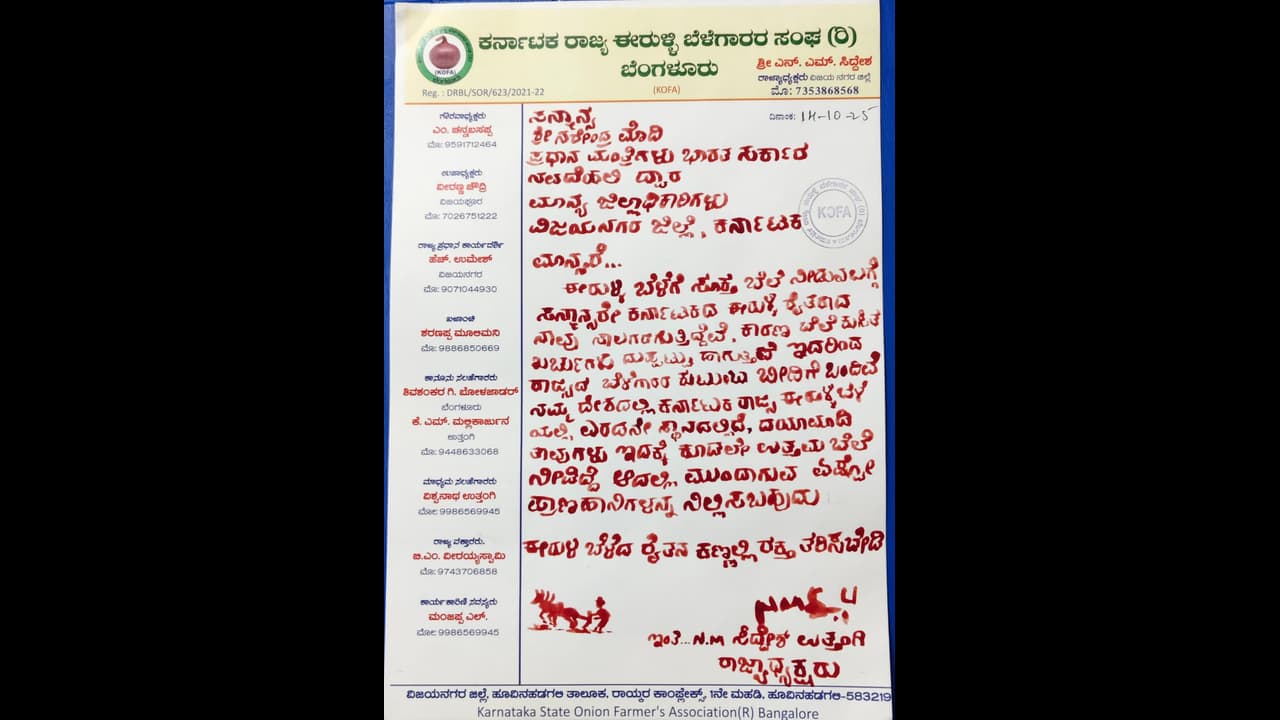 ಕರ್ನಾಟಕ ರಾಜ್ಯ ಈರುಳ್ಳಿ ಬೆಳೆಗಾರರ ಸಂಘ (ರಿ)
ಬೆಂಗಳೂರು
(KOFA)
ಶ್ರೀ ಎನ್. ಎಮ್. ಸಿದ್ದೇಶ
ರಾಜ್ಯಾಧ್ಯಕ್ಷರು ವಿಜಯ ನಗರ ಜಿಲ್ಲೆ
ಮೊ: 7353868568
(KOFA)
Reg. : DRBL/SOR/623/2021-22
ದಿನಾಂಕ: 14-10-25
ಗೌರವಾಧ್ಯಕ್ಷರು
ಎಂ. ಚನ್ನಬಸಪ್ಪ
ಮೊ: 9591712464
ಉಪಾಧ್ಯಕ್ಷರು
ವೀರಣ್ಣ ಚೌದ್ರಿ
ವಿಜಯಪೂರ
ಮೊ: 7026751222
ರಾಜ್ಯ ಪ್ರಧಾನ ಕಾರ್ಯದರ್ಶಿ
ಹೆಚ್. ಉಮೇಶ್
ವಿಜಯನಗರ
ಮೊ: 9071044930
ಖಜಾಂಚಿ
ಶರಣಪ್ಪ ಮೂಲಿಮನಿ
ಮೊ: 9886850669
ಕಾನೂನು ಸಲಹೆಗಾರರು
ಶಿವಶಂಕರ ಗಿ. ಬೋಳಜಾಡರ್
ಬೆಂಗಳೂರು
ಕೆ. ಎಮ್. ಮಲ್ಲಿಕಾರ್ಜುನ
ಉತ್ತಂಗಿ
ಮೊ: 9448633068
ಮಾಧ್ಯಮ ಸಲಹೆಗಾರರು
ವಿಶ್ವನಾಥ ಉತ್ತಂಗಿ
ಮೋ: 9986569945
ರಾಜ್ಯ ವಕ್ತಾರರು.
ಬಿ.ಎಂ. ವೀರಯ್ಯಸ್ವಾಮಿ
ಮೊ: 9743706858
ಕಾರ್ಯಕಾರಿಣಿ ಸದಸ್ಯರು
ಮಂಜಪ್ಪ ಎಲ್.
ಮೋ: 9986569945
ಸನ್ಮಾನ್ಯ
ಶ್ರೀ ನರೇಂದ್ರ ಮೋದಿ
ಪ್ರಧಾನ ಮಂತ್ರಿಗಳು ಭಾರತ ಸರ್ಕಾರ
ನವದೆಹಲಿ ದ್ವಾರ
ಮಾನ್ಯ ಜಿಲ್ಲಾಧಿಕಾರಿಗಳು
ವಿಜಯನಗರ ಜಿಲ್ಲೆ, ಕರ್ನಾಟಕ
KOFA
ಮಾನ್ಯರೆ...
ಈರುಳ್ಳಿ ಬೆಳೆಗೆ ಸೂಕ್ತ ಬೆಲೆ ನೀಡುವ ಬಗ್ಗೆ
ಸನ್ಮಾನ್ಯರೇ ಕರ್ನಾಟಕದ ಈರುಳ್ಳಿ ರೈತರಾದ
ನಾವು ಸಾಲಗಾರಾಗುತ್ತಿದ್ದೇವೆ, ಕಾರಣ ಬೆಲೆ ಕುಸಿತ
ಖರ್ಚುಗಳು ದುಪ್ಪಟ್ಟು ಆಗುತ್ತಿದೆ ಇದರಿಂದ
ರಾಜ್ಯದ ಬೆಳೆಗಾರರ ಕುಟುಂಬ ಬೀದಿಗೆ ಬಂದಿವೆ
ನಮ್ಮ ದೇಶದಲ್ಲಿ ಕರ್ನಾಟಕ ರಾಜ್ಯ ಈರುಳ್ಳಿ ಬೆಳೆ
ಯಲ್ಲಿ ಎರಡನೇ ಸ್ಥಾನದಲ್ಲಿದೆ, ದಯಮಾಡಿ
ತಾವುಗಳು ಇದಕ್ಕೆ ಕೂಡಲೇ ಉತ್ತಮ ಬೆಲೆ
ನೀಡಿದ್ದೆ ಆದಲ್ಲಿ ಮುಂದಾಗುವ ಎಷ್ಟೋ
ಪ್ರಾಣಹಾನಿಗಳನ್ನ ನಿಲ್ಲಿಸಬಹುದು
ಈರುಳಿ ಬೆಳೆದ ರೈತನ ಕಣ್ಣಲ್ಲಿ ರಕ್ತ ತರಿಸಬೇಡಿ
ಇಂತಿ... N.M ಸಿದ್ದೇಶ್ ಉತ್ತಂಗಿ
ರಾಜ್ಯಾಧ್ಯಕ್ಷರು
ವಿಜಯನಗರ ಜಿಲ್ಲೆ, ಹೂವಿನಹಡಗಲಿ ತಾಲೂಕ, ರಾಯ್ಕರ ಕಾಂಪ್ಲೇಕ್ಸ್, 1ನೇ ಮಹಡಿ, ಹೂವಿನಹಡಗಲಿ-583219
Karnataka State Onion Farmer's Association(R) Bangalore